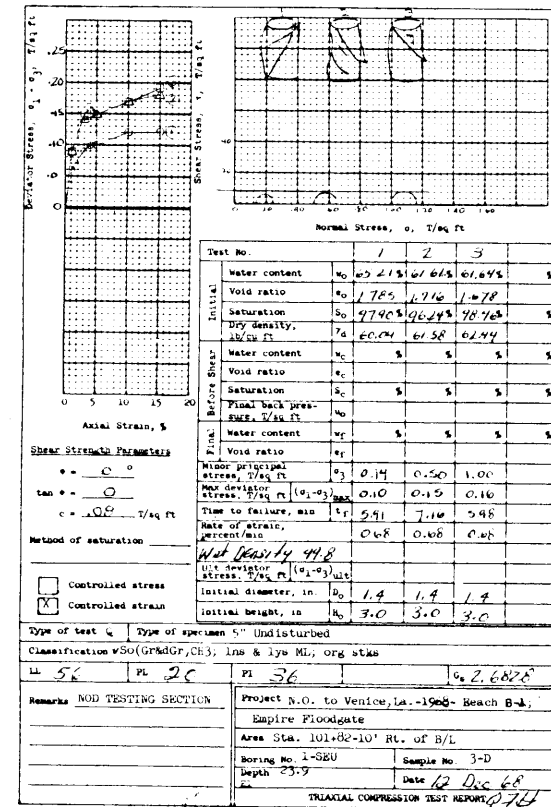 Deviator Stress, σ1 - σ3, T/sq ft
.25
.20
.15
.10
0
0 5 10 15 20
Axial Strain, %
Shear Stress, τ, T/sq ft
Normal Stress, σ, T/sq ft
Shear Strength Parameters
φ = 0 °
tan φ = 0
c = .08 T/sq ft
Method of saturation
Controlled stress
X Controlled strain
Test No. 1 2 3
Initial
Water content w0 65.21% 61.61% 61.64% %
Void ratio e0 1.785 1.716 1.678
Saturation S0 97.90% 96.24% 98.76%
Dry density, lb/cu ft γd 60.04 61.58 62.44
Before Shear
Water content wc % % % %
Void ratio ec
Saturation Sc % % % %
Final back pressure, T/sq ft u0
Final
Water content wf % % % %
Void ratio ef
Minor principal stress, T/sq ft σ3 0.14 0.50 1.00
Max deviator stress, T/sq ft (σ1-σ3)max 0.10 0.15 0.16
Time to failure, min tf 5.91 7.16 5.98
Rate of strain, percent/min 0.68 0.68 0.68
Wet Density 99.8
Ult deviator stress, T/sq ft (σ1-σ3)ult
Initial diameter, in. D0 1.4 1.4 1.4
Initial height, in H0 3.0 3.0 3.0
Type of test Q Type of specimen 5" Undisturbed
Classification vSo(Gr&dGr,CH3; lns & lys ML; org stks
LL 56 PL 20 PI 36 Gs 2.6828
Remarks NOD TESTING SECTION
Project N.O. to Venice,La.-1968- Reach B-1;
Empire Floodgate
Area Sta. 101+82-10' Rt. of B/L
Boring No. 1-SEU Sample No. 3-D
Depth 23.9
El
Date 12 Dec 68
TRIAXIAL COMPRESSION TEST REPORT